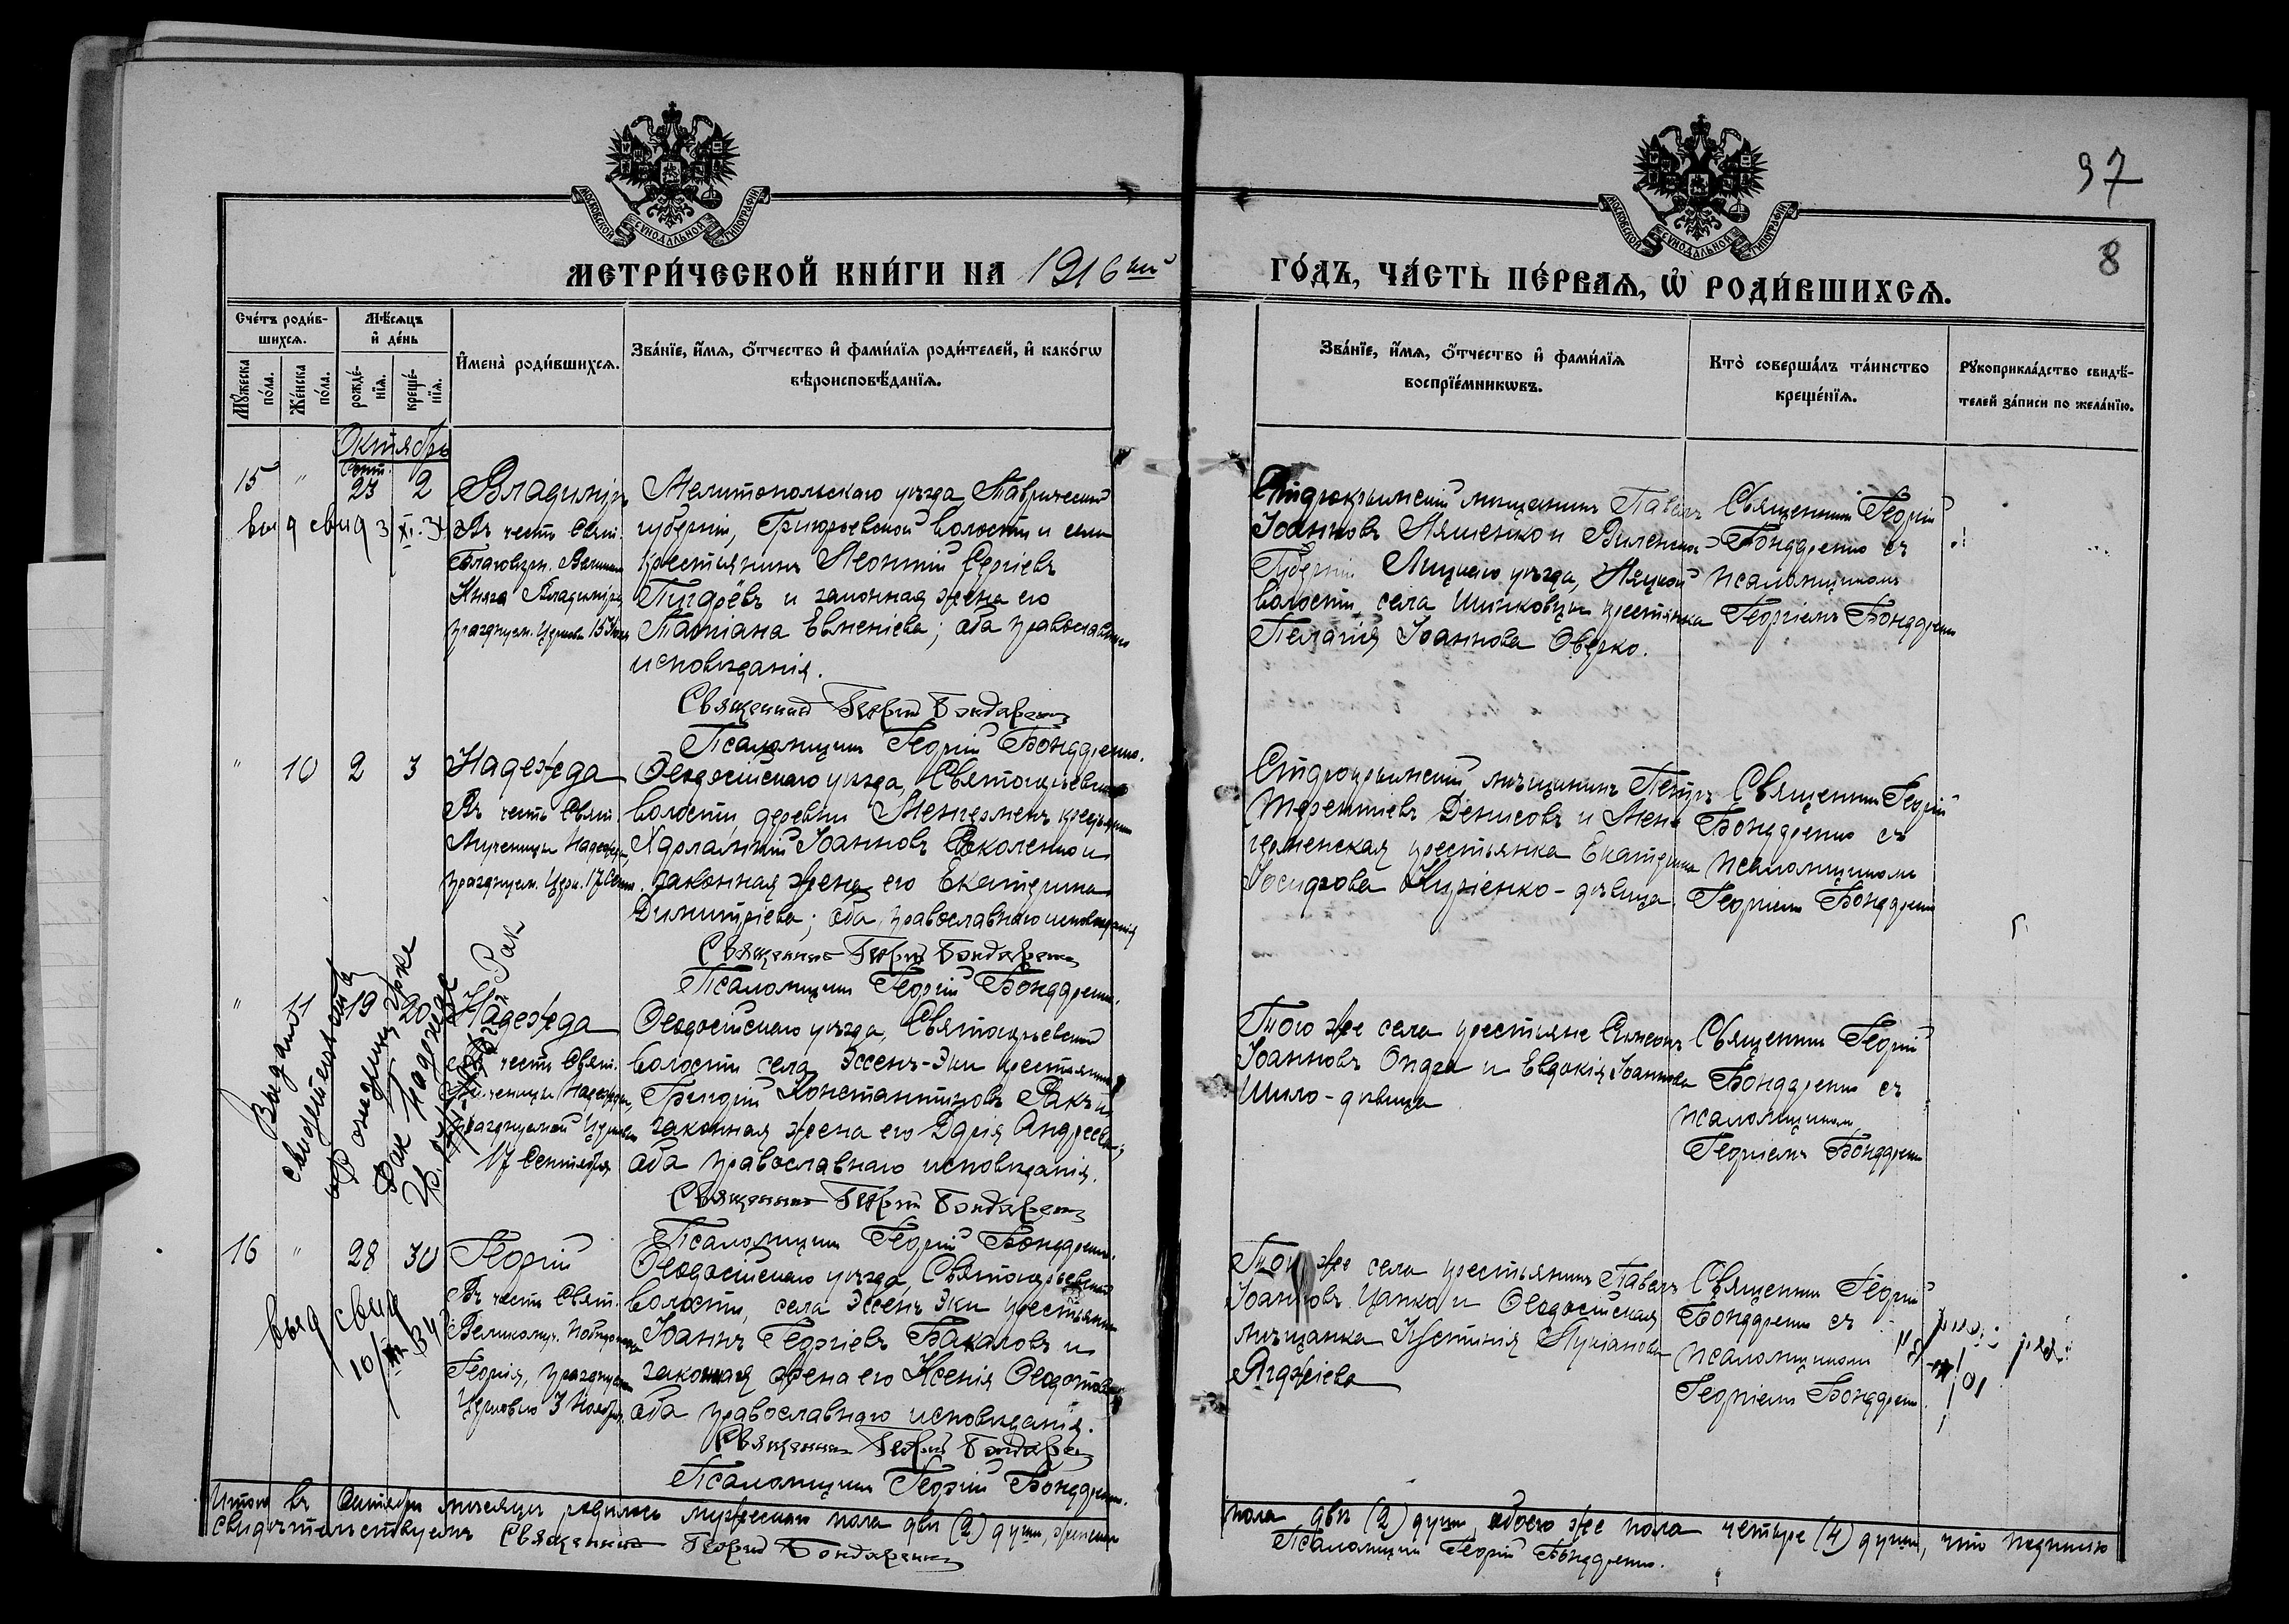 97
8
МОСКОВСКОЙ СѴНОДАЛЬНОЙ ТИПОГРАФІИ
МОСКОВСКОЙ СѴНОДАЛЬНОЙ ТИПОГРАФІИ
МЕТРИ́ЧЕСКОЙ КНИ́ГИ НА 1916 ый
ГО́ДЪ, ЧА́СТЬ ПЕ́РВАѦ, Ѡ҆ РОДИ́ВШИХСѦ.
Сче́тъ роди́в-
шихсѧ.
Мѣ́сѧцъ
и҆ де́нь
Мꙋ́жеска
по́ла.
Же́нска
по́ла.
рожде́-
нїѧ.
креще́-
нїѧ.
И҆мена̀ роди́вшихсѧ.
Зва́нїе, и҆́мѧ, ѻ҆́тчество и҆ фами́лїѧ роди́телей, и҆ како́гѡ
вѣроисповѣ́данїѧ.
Зва́нїе, и҆́мѧ, ѻ҆́тчество и҆ фами́лїѧ
воспрїе́мникѡвъ.
Кто̀ соверша́лъ та́инство
креще́нїѧ.
Рꙋкоприкла́дство свидѣ́-
телей за́писи по жела́нїю.
Октябрь
15 " Сент. 23 2
выд свид 3 XI. 34
Владимiръ
Въ честь Свят.
Благовѣрн. Великаго
Князя Владимiра
празднуем. Церковью 15 Июля
Мелитопольскаго уѣзда, Таврической
губернiи, Григорьевской волости и села
крестьянинъ Леонтiй Сергiевъ
и законная жена его
Татiана Евменiева; оба православнаго
исповѣданiя.
Священник Георгий Бондаренко
Псаломщикъ Георгiй Бондаренко.
Старокрымскiй мѣщанинъ Павелъ
Iоанновъ Ляшенко и Виленской
Губернiи уѣзда,
волости, села крестьянка
Пелагiя Iоаннова Оверко.
Священникъ Георгiй
Бондаренко съ
псаломщикомъ
Георгiемъ Бондаренко
" 10 2 3
Надежда
Въ честь Свят.
Мученицы Надежды,
празднуем. Церк. 17 Сент.
Ѳеодосiйскаго уѣзда,
волости, деревни крестьянинъ
Харлампiй Iоанновъ и
законная жена его Екатерина
Димитрiева; оба православнаго исповѣданiя
Священник Георгий Бондаренко
Псаломщикъ Георгiй Бондаренко.
Старокрымскiй мѣщанинъ Петръ
Терентiевъ Денисовъ и
крестьянка Екатерина
девица.
Священникъ Георгiй
Бондаренко съ
псаломщикомъ
Георгiемъ Бондаренко
" 11 19 20
Выдано
свидетельство
о рождении
Рак Надежде
Рак
Надежда
честь Свят.
Мученицы Надежды,
празднуемой Церковью
17 Сентября
Ѳеодосiйскаго уѣзда,
волости села Эссенъ-Эки крестьянинъ
Григорiй Константиновъ Ракъ и
законная жена его Дарiя Андреева;
оба православнаго исповѣданiя.
Священник Георгий Бондаренко
Псаломщикъ Георгiй Бондаренко.
Того же села крестьяне Симеонъ
Iоанновъ Опара и Евдокiя Iоаннова
Шило - дѣвица
Священникъ Георгiй
Бондаренко съ
псаломщикомъ
Георгiемъ Бондаренко
16 " 28 30
выд свид
10/ 34
Георгiй
Въ честь Свят.
Великомуч. Побѣдоносца
Георгiя, празднуем.
Церковью 3 Ноября.
Ѳеодосiйскаго уѣзда,
волости, села Эссенъ Эки крестьянинъ
Iоаннъ Георгiевъ Бакаловъ и
законная жена его Ксенiя Ѳеодотова
оба православнаго исповѣданiя.
Священник Георгий Бондаренко
Псаломщикъ Георгiй Бондаренко.
Того же села крестьянинъ Павелъ
Iоанновъ Цанко и Ѳеодосiйская
мѣщанка Лукiанова
Священникъ Георгiй
Бондаренко съ
псаломщикомъ
Георгiемъ Бондаренко.
Итого въ Октябрѣ мѣсяцѣ родилось мужескаго пола двѣ (2) души, женскаго
пола двѣ (2) души, обоего же пола четыре (4) души, что подписью
свидѣтельствуемъ Священник Георгий Бондаренко
Псаломщикъ Георгiй Бондаренко.